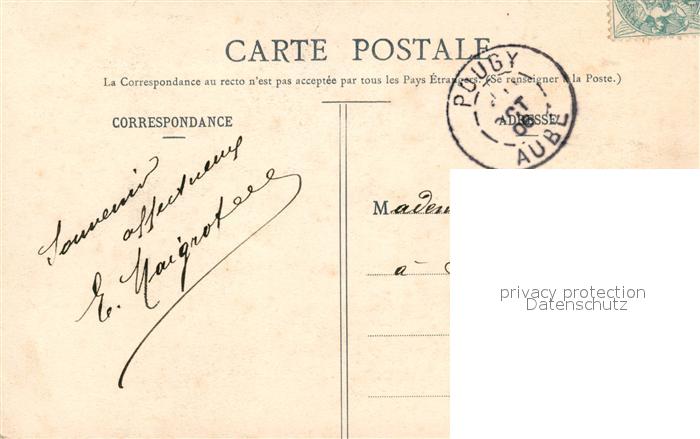 CARTE POSTALE
La Correspondance au recto n'est pas acceptée par tous les Pays Étrangers. (Se renseigner à la Poste.)
POUGY
AUBE
CORRESPONDANCE
ADRESSE
Souvenir
affectueux
E. Maigrot
Madem
à
privacy protection
Datenschutz